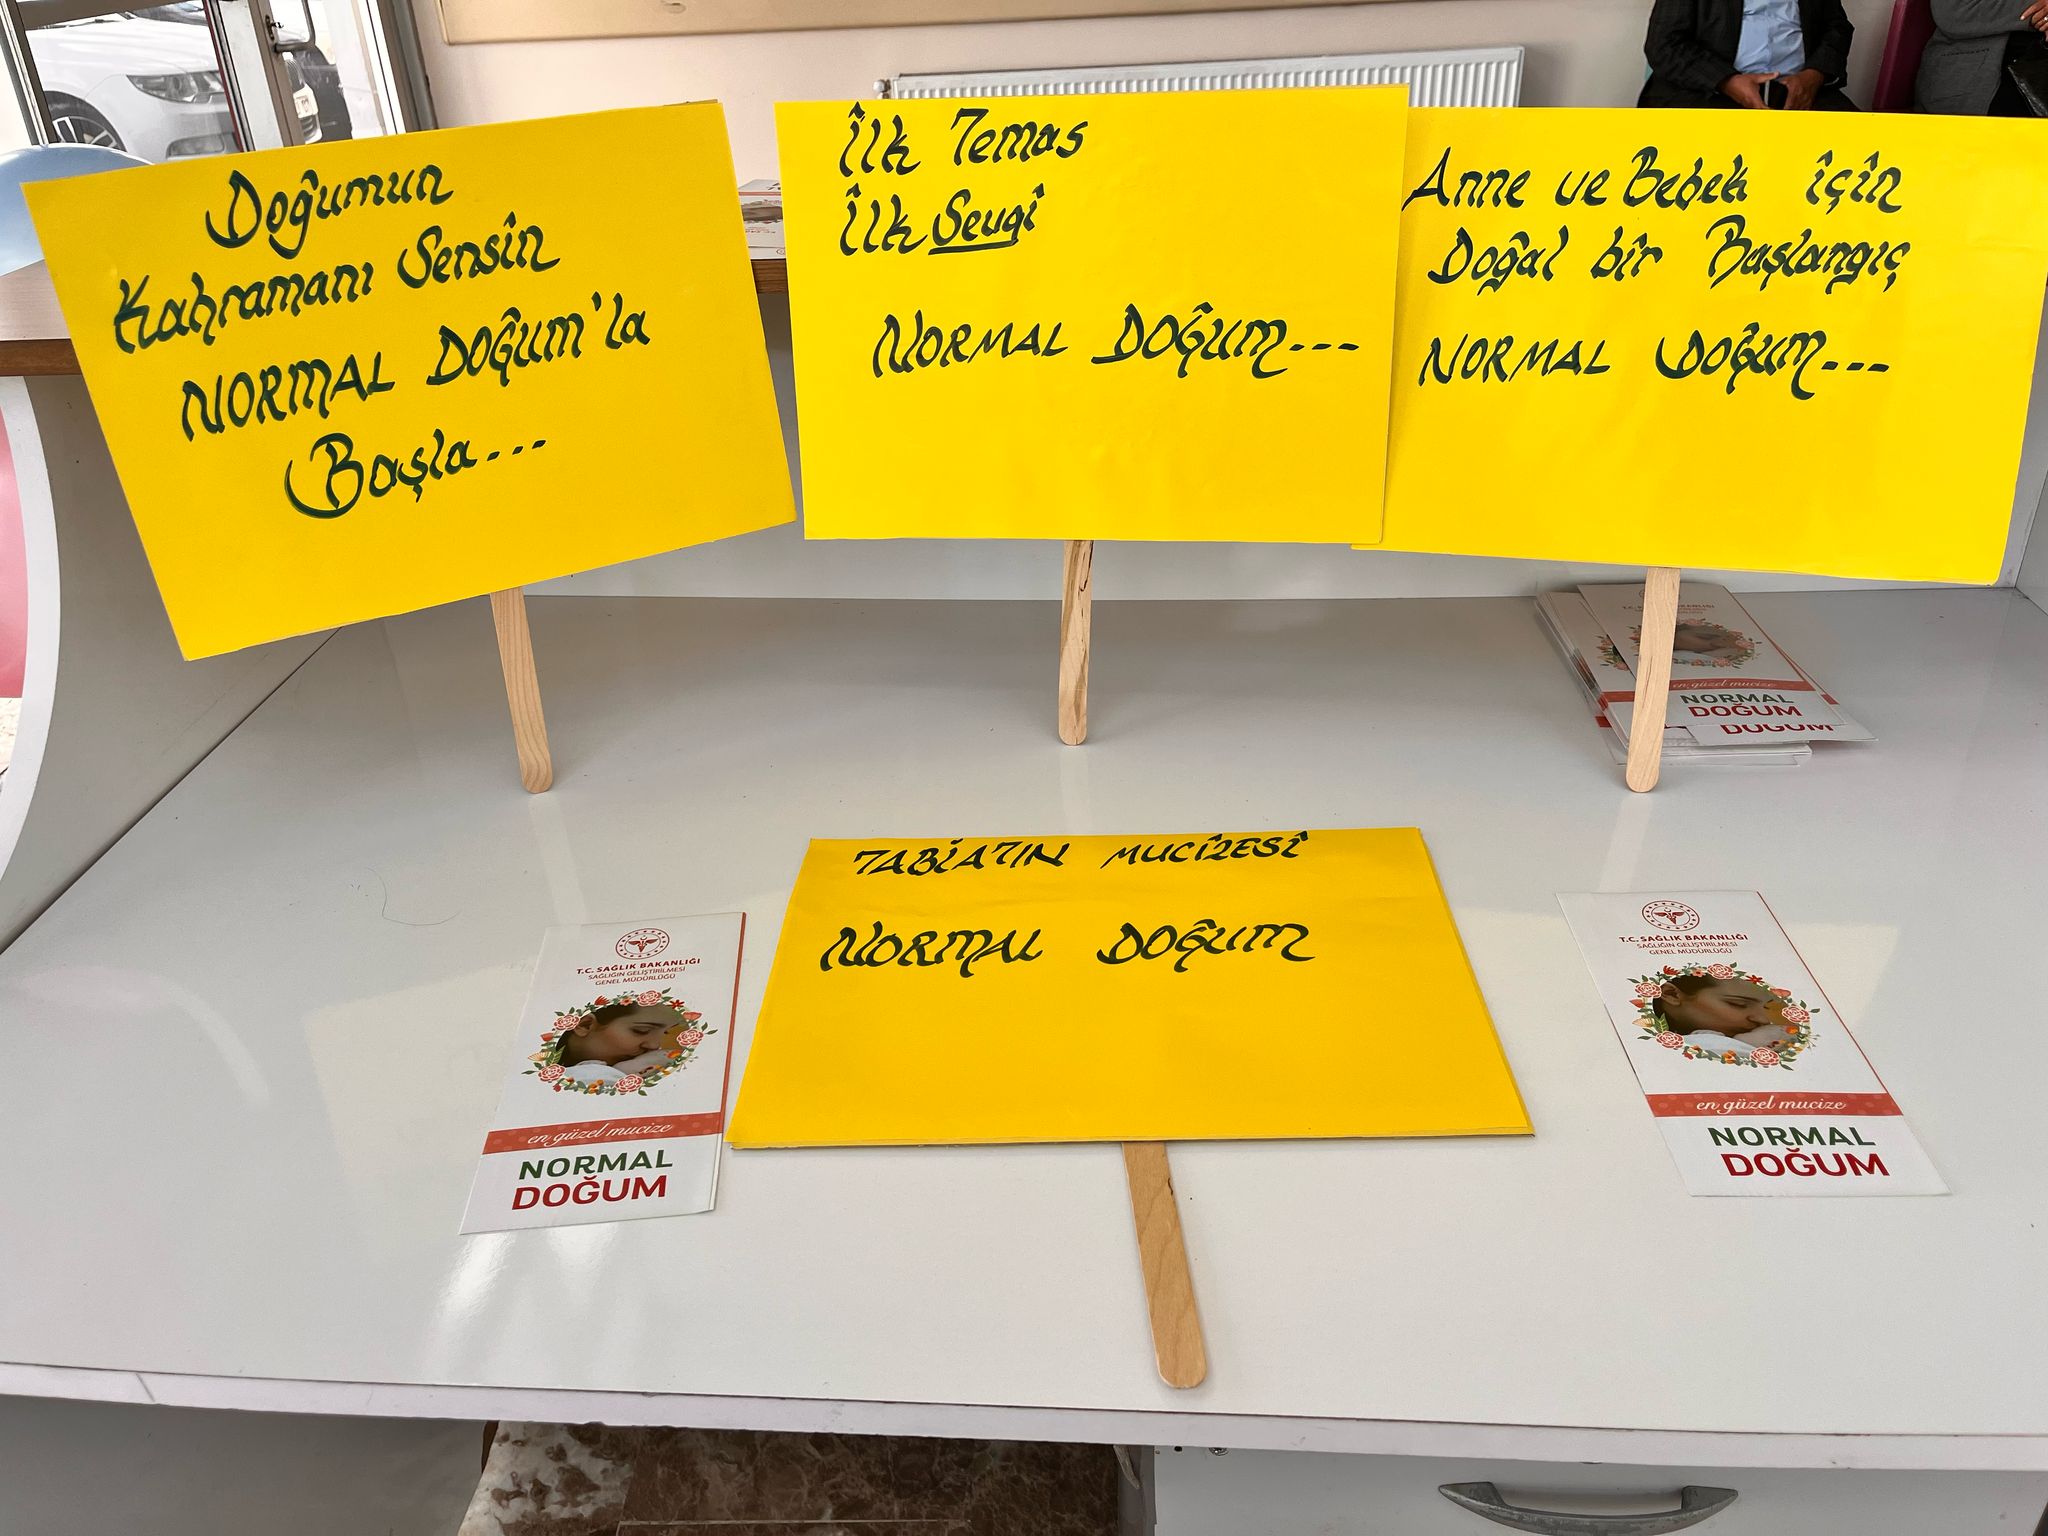 Doğumun
Kahramanı Sensin
NORMAL DOĞUM'la
Başla...
İlk Temas
İlk Sevgi
NORMAL DOĞUM...
Anne ve Bebek için
Doğal bir Başlangıç
NORMAL DOĞUM...
en güzel mucize
NORMAL
DOĞUM
DOĞUM
TABİATIN MUCİZESİ
NORMAL DOĞUM
T.C. SAĞLIK BAKANLIĞI
SAĞLIĞIN GELİŞTİRİLMESİ
GENEL MÜDÜRLÜĞÜ
en güzel mucize
NORMAL
DOĞUM
T.C. SAĞLIK BAKANLIĞI
SAĞLIĞIN GELİŞTİRİLMESİ
GENEL MÜDÜRLÜĞÜ
en güzel mucize
NORMAL
DOĞUM